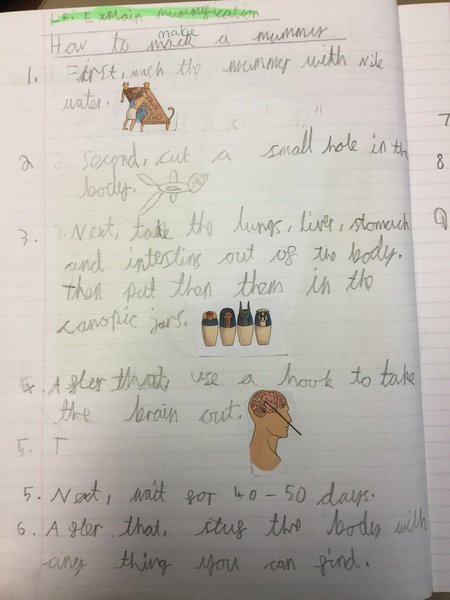 LF: Explain mummification
make
How to mack a mummy
1. First, wash the mummey with Nile
water.
2 2. Second, cut a small hole in the
body.
3. 3. Next, take the lungs, liver, stomach
and intestins out of the body.
then put then them in the
canopic jars.
4. After that, use a hook to take
the brain out.
5. T
5. Next, wait for 40-50 days.
6. After that, stuf the body with
any thing you can find.
7
8
9